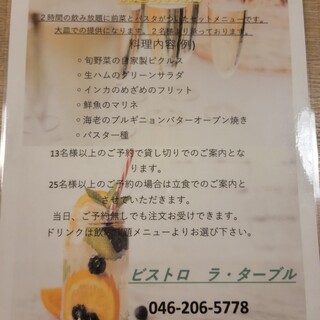 ２時間の飲み放題に前菜とパスタがついたセットメニューです。
大皿での提供になります。２名様より承っております。
料理内容(例)
◦旬野菜の自家製ピクルス
◦生ハムのグリーンサラダ
◦インカのめざめのフリット
◦鮮魚のマリネ
◦海老のブルギニョンバターオーブン焼き
◦パスタ一種
13名様以上のご予約で貸し切りでのご案内とな
ります。
25名様以上のご予約の場合は立食でのご案内と
させていただきます。
当日、ご予約無しでも注文お受けできます。
ドリンクは飲み放題メニューよりお選び下さい。
ビストロ　ラ・ターブル
046-206-5778